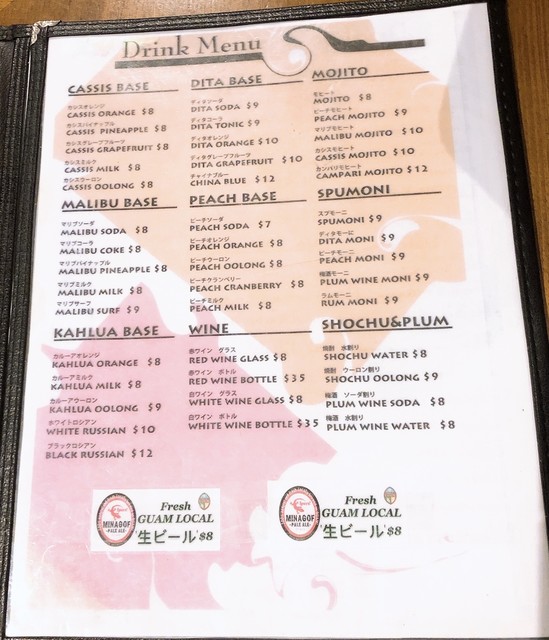 Drink Menu
CASSIS BASE
カシスオレンジ
CASSIS ORANGE $8
カシスパイナップル
CASSIS PINEAPPLE $8
カシスグレープフルーツ
CASSIS GRAPEFRUIT $8
カシスミルク
CASSIS MILK $8
カシスウーロン
CASSIS OOLONG $8
DITA BASE
ディタソーダ
DITA SODA $9
ディタコーラ
DITA TONIC $9
ディタオレンジ
DITA ORANGE $10
ディタグレープフルーツ
DITA GRAPEFRUIT $10
チャイナブルー
CHINA BLUE $12
MOJITO
モヒート
MOJITO $8
ピーチモヒート
PEACH MOJITO $9
マリブモヒート
MALIBU MOJITO $10
カシスモヒート
CASSIS MOJITO $10
カンパリモヒート
CAMPARI MOJITO $12
MALIBU BASE
マリブソーダ
MALIBU SODA $8
マリブコーラ
MALIBU COKE $8
マリブパイナップル
MALIBU PINEAPPLE $8
マリブミルク
MALIBU MILK $8
マリブサーフ
MALIBU SURF $9
PEACH BASE
ピーチソーダ
PEACH SODA $7
ピーチオレンジ
PEACH ORANGE $8
ピーチウーロン
PEACH OOLONG $8
ピーチクランベリー
PEACH CRANBERRY $8
ピーチミルク
PEACH MILK $8
SPUMONI
スプモーニ
SPUMONI $9
ディタモーニ
DITA MONI $9
ピーチモーニ
PEACH MONI $9
梅酒モーニ
PLUM WINE MONI $9
ラムモーニ
RUM MONI $9
KAHLUA BASE
カルーアオレンジ
KAHLUA ORANGE $8
カルーアミルク
KAHLUA MILK $8
カルーアウーロン
KAHLUA OOLONG $9
ホワイトロシアン
WHITE RUSSIAN $10
ブラックロシアン
BLACK RUSSIAN $12
WINE
赤ワイン グラス
RED WINE GLASS $8
赤ワイン ボトル
RED WINE BOTTLE $35
白ワイン グラス
WHITE WINE GLASS $8
白ワイン ボトル
WHITE WINE BOTTLE $35
SHOCHU&PLUM
焼酎 水割り
SHOCHU WATER $8
焼酎 ウーロン割り
SHOCHU OOLONG $9
梅酒 ソーダ割り
PLUM WINE SODA $8
梅酒 水割り
PLUM WINE WATER $8
MINAGOF
PALE ALE
Fresh
GUAM LOCAL
生ビール $8
MINAGOF
PALE ALE
Fresh
GUAM LOCAL
生ビール $8